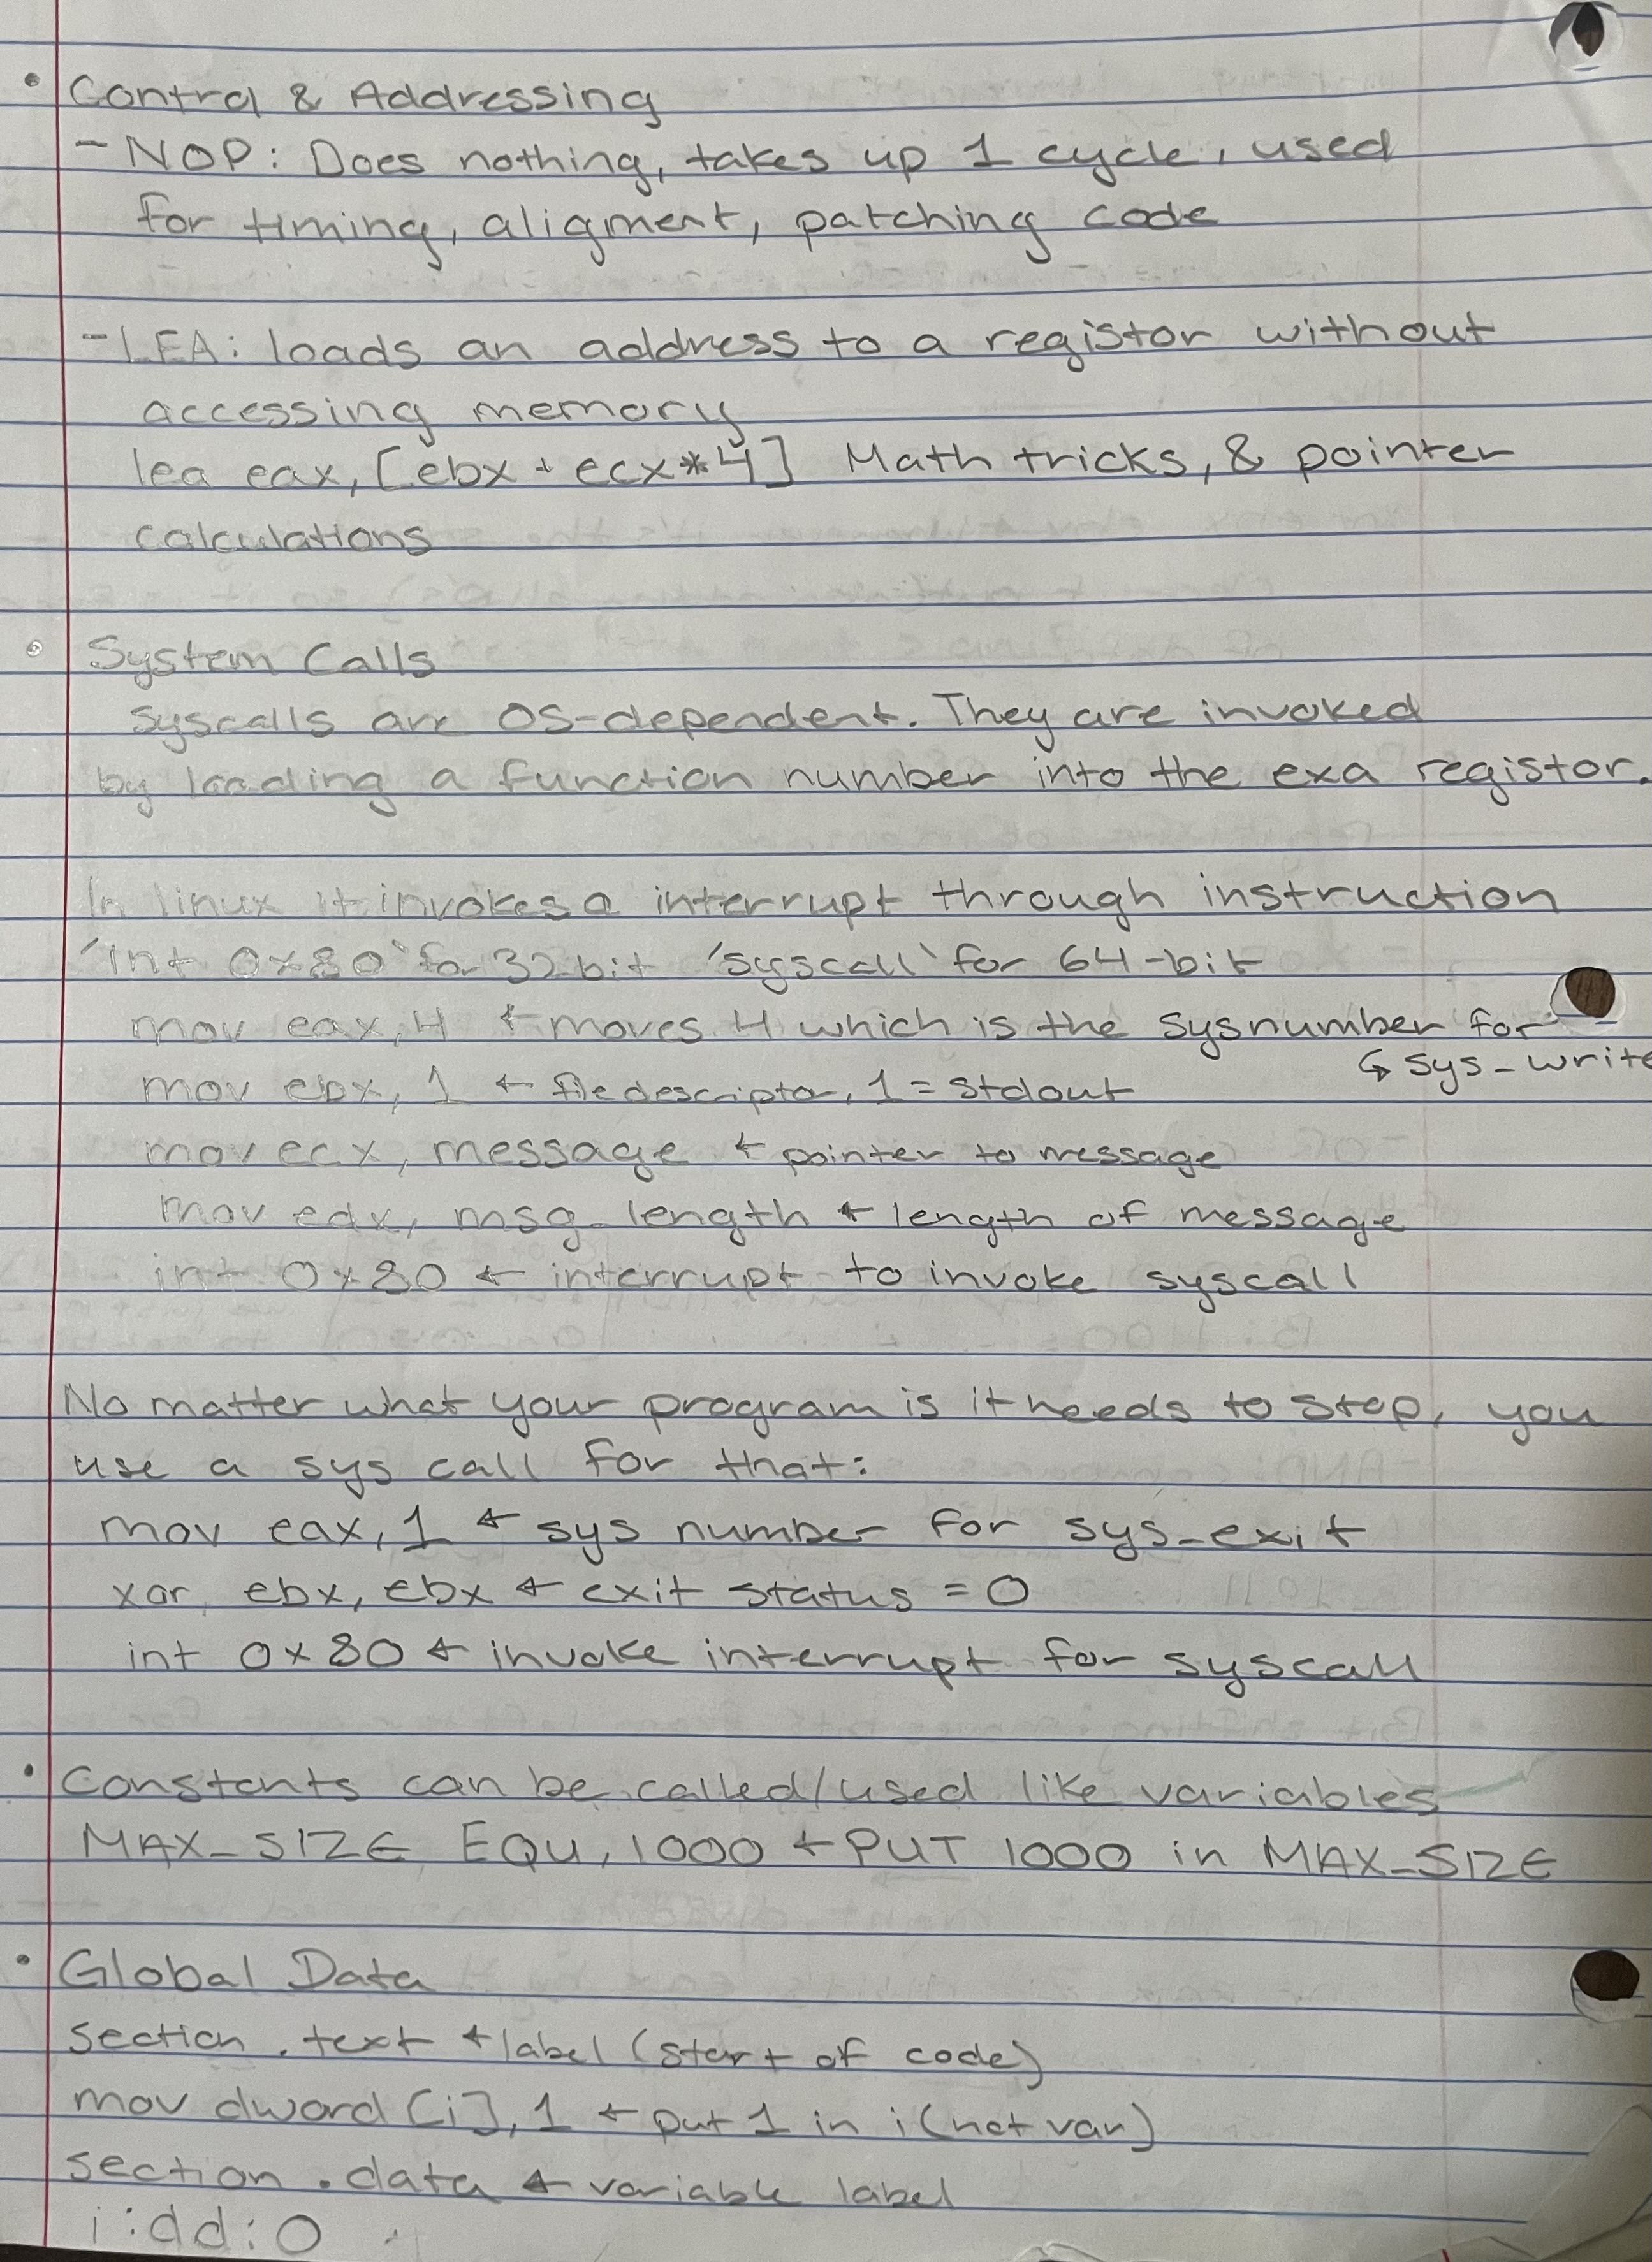 • Control & Addressing
- NOP: Does nothing, takes up 1 cycle, used
for timing, aligment, patching code
- LEA: loads an address to a registor without
accessing memory
lea eax, [ebx + ecx*4] Math tricks, & pointer
calculations
• System Calls
Syscalls are OS-dependent. They are invoked
by loading a function number into the exa registor.
In linux it invokes a interrupt through instruction
'int 0x80' for 32bit 'syscall' for 64-bit
mov eax, 4 ← moves 4 which is the sysnumber for
↳ sys_write
mov ebx, 1 ← file descriptor, 1 = stdout
mov ecx, message ← pointer to message
mov edx, msg_length ← length of message
int 0x80 ← interrupt to invoke syscall
No matter what your program is it needs to stop, you
use a sys call for that:
mov eax, 1 ← sys number for sys_exit
xor ebx, ebx ← exit status = 0
int 0x80 ← invoke interrupt for syscall
• Constants can be called/used like variables
MAX_SIZE EQU, 1000 ← PUT 1000 in MAX_SIZE
• Global Data
section .text ← label (start of code)
mov dword [i], 1 ← put 1 in i (not var)
section .data ← variable label
i:dd:0